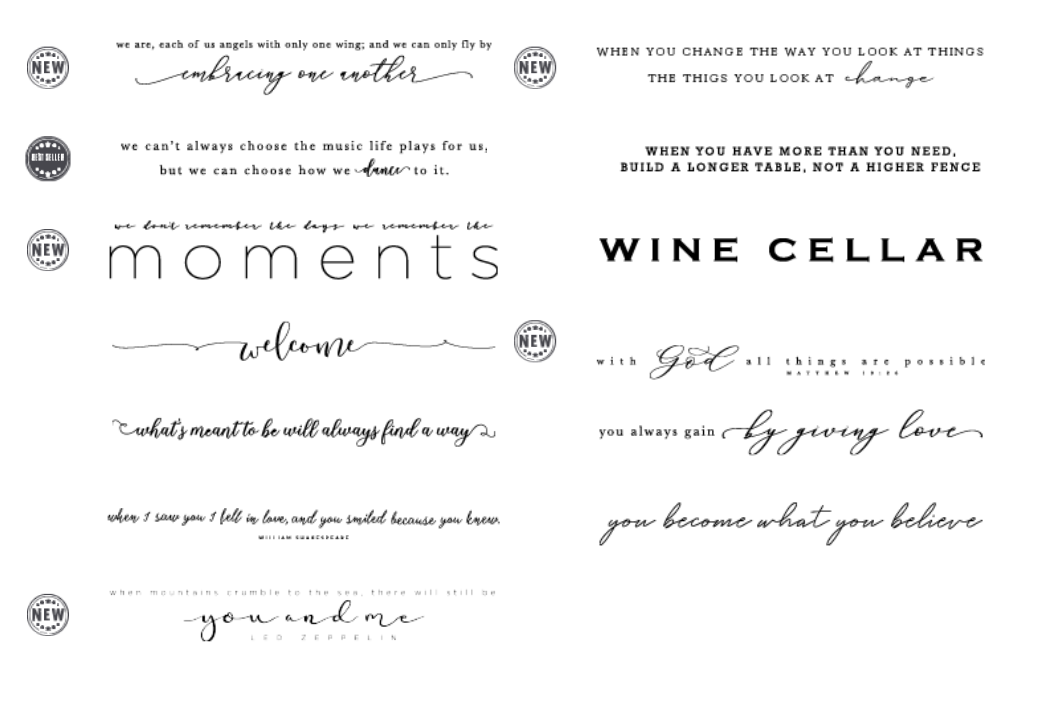 NEW
we are, each of us angels with only one wing; and we can only fly by
embracing one another
BEST SELLER
we can't always choose the music life plays for us,
but we can choose how we dance to it.
NEW
we don't remember the days we remember the
moments
welcome
what's meant to be will always find a way
when I saw you I fell in love, and you smiled because you knew.
WILLIAM SHAKESPEARE
NEW
when mountains crumble to the sea, there will still be
you and me
LED ZEPPELIN
NEW
WHEN YOU CHANGE THE WAY YOU LOOK AT THINGS
THE THIGS YOU LOOK AT change
WHEN YOU HAVE MORE THAN YOU NEED,
BUILD A LONGER TABLE, NOT A HIGHER FENCE
WINE CELLAR
NEW
with God all things are possible
MATTHEW 19:26
you always gain by giving love
you become what you believe